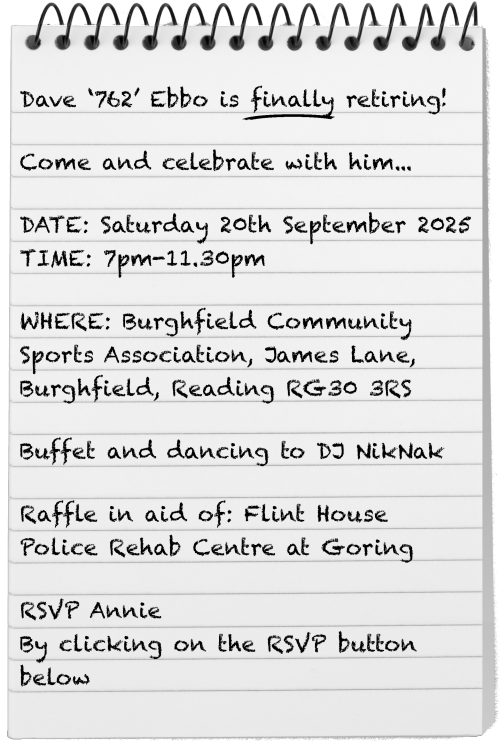 Dave ‘762’ Ebbo is finally retiring!
Come and celebrate with him...
DATE: Saturday 20th September 2025
TIME: 7pm-11.30pm
WHERE: Burghfield Community
Sports Association, James Lane,
Burghfield, Reading RG30 3RS
Buffet and dancing to DJ NikNak
Raffle in aid of: Flint House
Police Rehab Centre at Goring
RSVP Annie
By clicking on the RSVP button
below